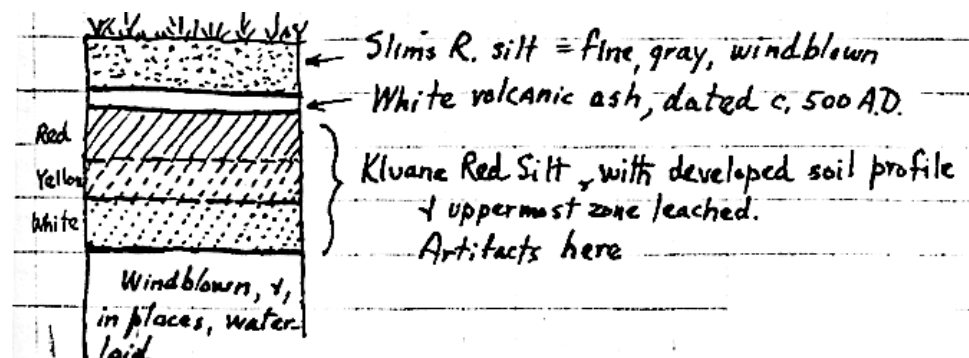 Slims R. silt = fine, gray, windblown
White volcanic ash, dated c. 500 A.D.
Red
Yellow
White
Kluane Red Silt, with developed soil profile
& uppermost zone leached.
Artifacts here
Windblown, &,
in places, water-
laid